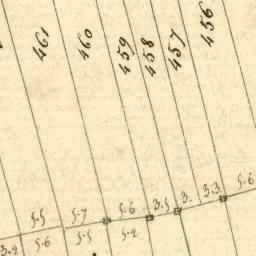 461 460 459 458 457 456
5.5 5.7 5.6 3.5 3. 3.3 5.6
3.2 5.6 5.5 5.2